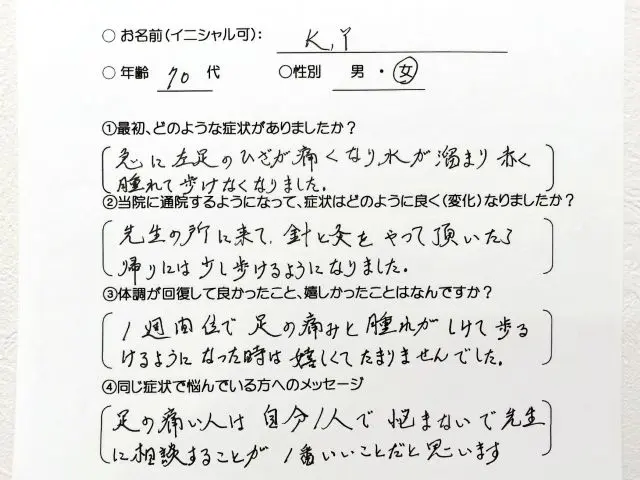 ○ お名前(イニシャル可): K,Y
○ 年齢 70 代 ○性別 男 ・ 女
①最初、どのような症状がありましたか?
急に左足のひざが痛くなり水が溜まり赤く
腫れて歩けなくなりました。
②当院に通院するようになって、症状はどのように良く(変化)なりましたか?
先生の所に来て、針と灸をやって頂いたら
帰りには少し歩けるようになりました。
③体調が回復して良かったこと、嬉しかったことはなんですか?
1週間位で足の痛みと腫れがしけて歩る
けるようになった時は嬉しくてたまりませんでした。
④同じ症状で悩んでいる方へのメッセージ
足の痛い人は自分1人で悩まないで先生
に相談することが1番いいことだと思います